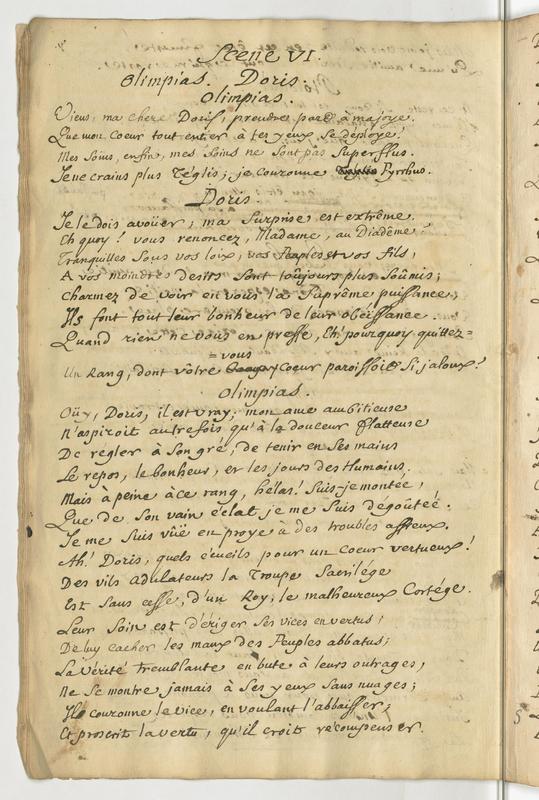 Scene VI.
Olimpias. Doris.
Olimpias.
Viens, ma chere Doris, prendre part à ma joye.
Que mon Coeur tout entier à tes yeux se déploye!
Mes Soins, enfin, mes Soins ne sont pas Superflus.
Je ne crains plus Téglis; je Couronne Pyrrhus.
Doris.
Je le dois avoüer; ma Surprise est extrême.
Eh quoy! vous renoncez, Madame, au Diadême?
Tranquilles Sous vos loix, vos Peuples et vos fils,
A vos moindres desirs Sont toûjours plus Soûmis;
Charmez de voir en vous la Suprême puissance,
Ils font tout leur bonheur de leur obeïssance.
Quand rien ne vous en presse, Eh! pourquoy quittez=
=vous
Un Rang, dont vôtre Coeur paroissoit Si jaloux?
Olimpias.
Oüy, Doris, il est vray; mon ame ambitieuse
N'aspiroit autrefois qu'à la douceur flatteuse
De regler à Son gré, de tenir en Ses mains
Le repos, le bonheur, et les jours des Humains.
Mais à peine à ce rang, hélas! Suis-je montée,
Que de Son vain éclat je me Suis dégoûtée.
Je me Suis vûë en proye à des troubles affreux.
Ah! Doris, quels écueils pour un Coeur vertueux!
Des vils Adulateurs la Troupe Sacrilége
Est Sans cesse, d'un Roy, le malheureux Cortége.
Leur Soin est d'ériger Ses vices en vertus;
De luy cacher les maux des Peuples abbatus;
La Vérité tremblante en bute à leurs outrages,
Ne Se montre jamais à Ses yeux Sans nuages;
Il Couronne le vice, en voulant l'abbaisser;
Et proscrit la vertu, qu'il croit récompenser.